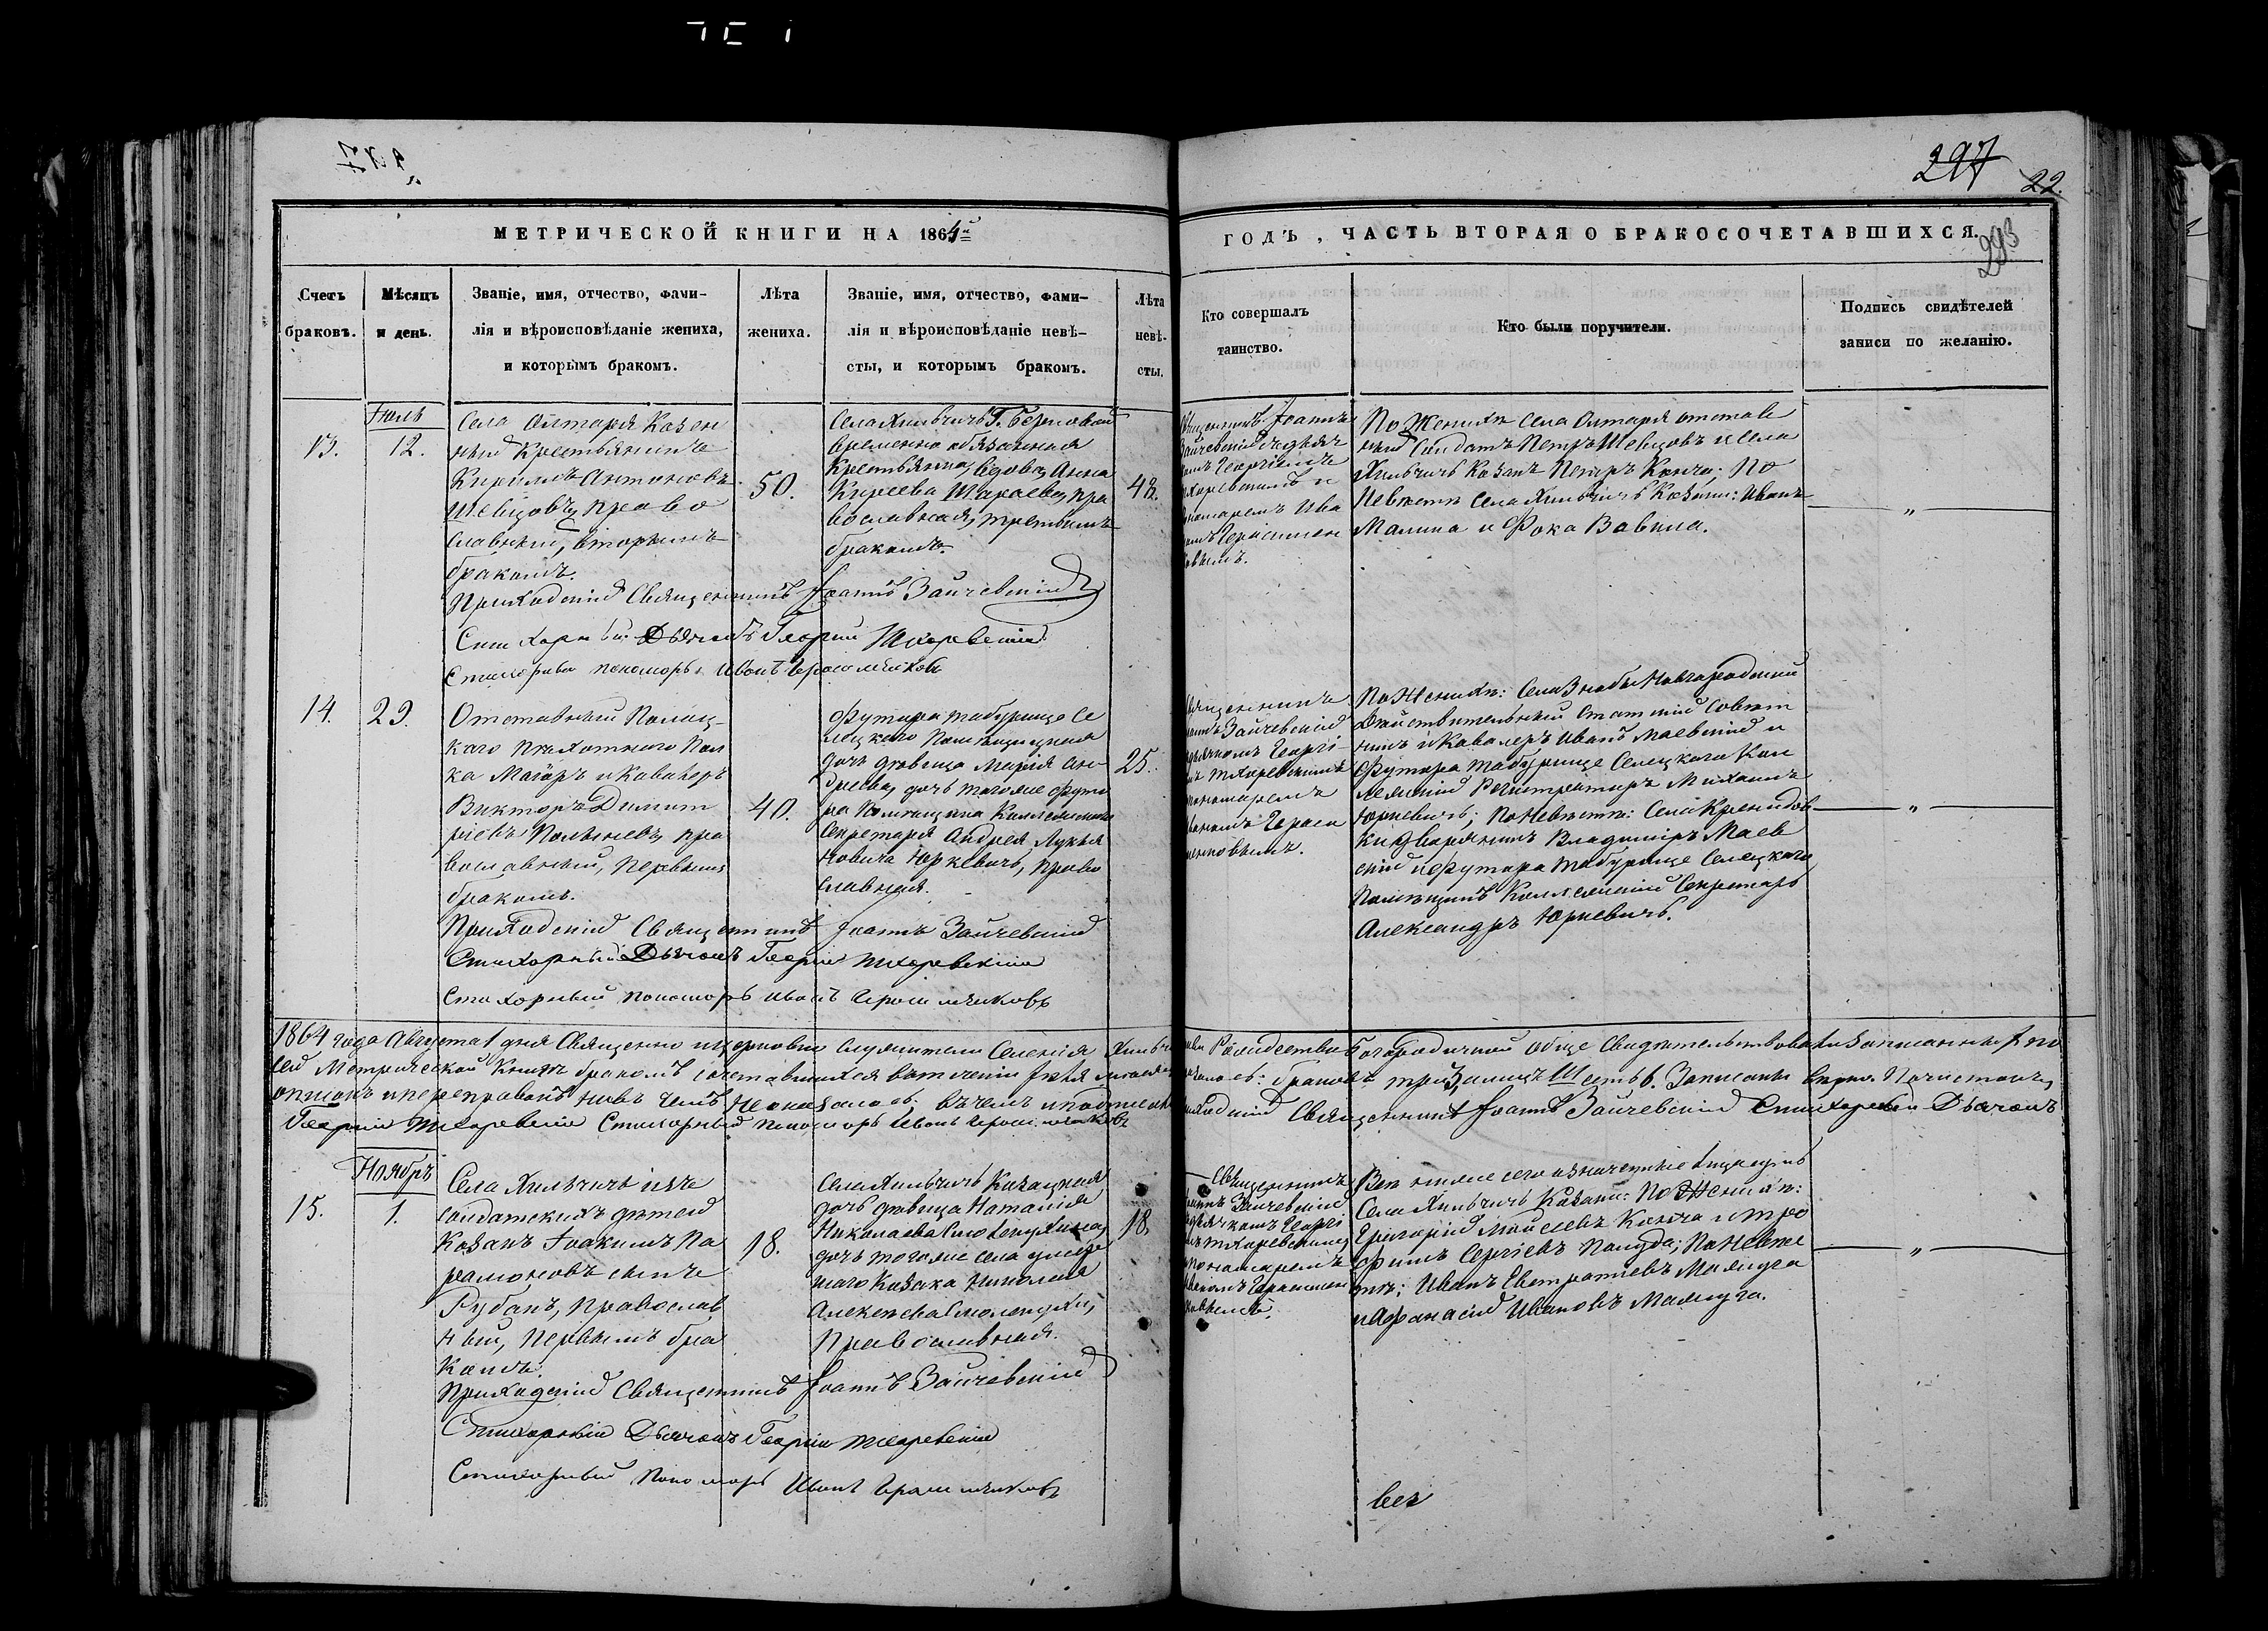 297
22.
293
МЕТРИЧЕСКОЙ КНИГИ НА 1864й
ГОДЪ, ЧАСТЬ ВТОРАЯ О БРАКОСОЧЕТАВШИХСЯ.
Счетъ браковъ.
Мѣсяцъ и день.
Званіе, имя, отчество, фами-
лія и вѣроисповѣданіе жениха,
и которымъ бракомъ.
Лѣта
жениха.
Званіе, имя, отчество, фами-
лія и вѣроисповѣданіе невѣ-
сты, и которымъ бракомъ.
Лѣта
невѣ-
сты.
Кто совершалъ
таинство.
Кто были поручители.
Подпись свидѣтелей
записи по желанію.
Іюль
13.
12.
Села Олтаря Казен
ный Крестьянинъ
Кириллъ Антоновъ
Шевцовъ, право
славный, вторымъ
бракомъ.
50.
Села Хильчичъ Г.
временно обязанная
Крестьянка, вдова, Анна
Киреева, пра
вославная, третьимъ
бракомъ.
48.
Іоаннъ
Зайчевскій съ дьяч
комъ Георгіемъ
и
пономаремъ Ива
номъ Герасимен
ковымъ.
По Женихѣ села Олтаря отстав
ный Солдатъ Петръ Шевцовъ и села
Хильчичъ Козакъ Петръ Конча; По
Невѣстѣ села Хильчичъ Козаки: Иванъ
Малина и Фока Вавила.
"
Приходскій Священникъ Іоаннъ Зайчевскій
Стихарный Дьячокъ Георгій
Стихарный пономарь Иванъ Герасименковъ
14.
29.
Отставный Полоц-
каго пѣхотнаго Пол
ка Маіоръ и Кавалеръ
Викторъ Димит
ріевъ, пра
вославный, первымъ
бракомъ.
40.
Футора Табурище Се
лецкаго Помѣщицкая
дочь дѣвица Марія Ан-
дреева, дочь тогоже футо
ра помѣщика Коллежскаго
Секретаря Андрея Лукья
новича Юркевичъ, право
славная.
25.
Священникъ
Зайчевскій
съ дьячкомъ Георгі
пономаремъ
Иваномъ Гераси
менковымъ.
По Женихѣ: Села Знобы Новгородской
Дѣйствительный Статскій Совѣт
никъ и Кавалеръ Иванъ Маевскій и
Футора Табурище Селецкаго Кол
лежскій Регистраторъ Михаилъ
Юркевичъ; По Невѣстѣ: Села Кренидов
ки Дворянинъ Владиміръ Маев
скій и Футора Табурище Селецкаго
Помѣщикъ Коллежскій Секретарь
Александръ Юркевичъ.
"
Приходскій Священникъ Іоаннъ Зайчевскій
Стихарный Дьячокъ Георгій
Стихарный пономарь Иванъ Герасименковъ
1864 года Августа 1 дня Священно и церковно служители Селенія Рождество Богородичной обще Свидѣтельствовали записанныхъ по
сей Метрической Книгѣ бракомъ сочетавшихся въ теченіи Іюля браковъ три, а лицъ Шесть 6. Записаны вѣрно. Почистокъ,
описокъ и переправокъ ни въ чемъ не оказалось въ чемъ и подписались Священникъ Іоаннъ Зайчевскій Стихарный Дьячокъ
Георгій Стихарный Пономарь Иванъ Герасименковъ
Ноябрь
15.
1.
Села Хильчичъ изъ
солдатскихъ дѣтей
Козакъ Іоакимъ Па
рамоновъ сынъ
Рубанъ, Православ
ный, первымъ бра
комъ.
18.
Села Хильчичъ Козацкая
дочь дѣвица Наталія
Николаева
дочь тогоже села умер
шаго Козака Николая
Алексѣева
Православная.
18.
Священникъ
Іоаннъ Зайчевскій
съ дьячкомъ Георгі
пономаремъ
Иваномъ Герасимен
ковымъ.
Всѣ ниже сего означенные лица суть
Села Хильчичъ Козаки: По Женихѣ:
Григорій Конча и Тро
фимъ Сергіевъ Палуда; По Невѣс
тѣ: Иванъ Евстратіевъ Малюга
и Афанасій Ивановъ Малюга.
"
Приходскій Священникъ Іоаннъ Зайчевскій
Стихарный Дьячокъ Георгій
Стихарный Пономарь Иванъ Герасименковъ